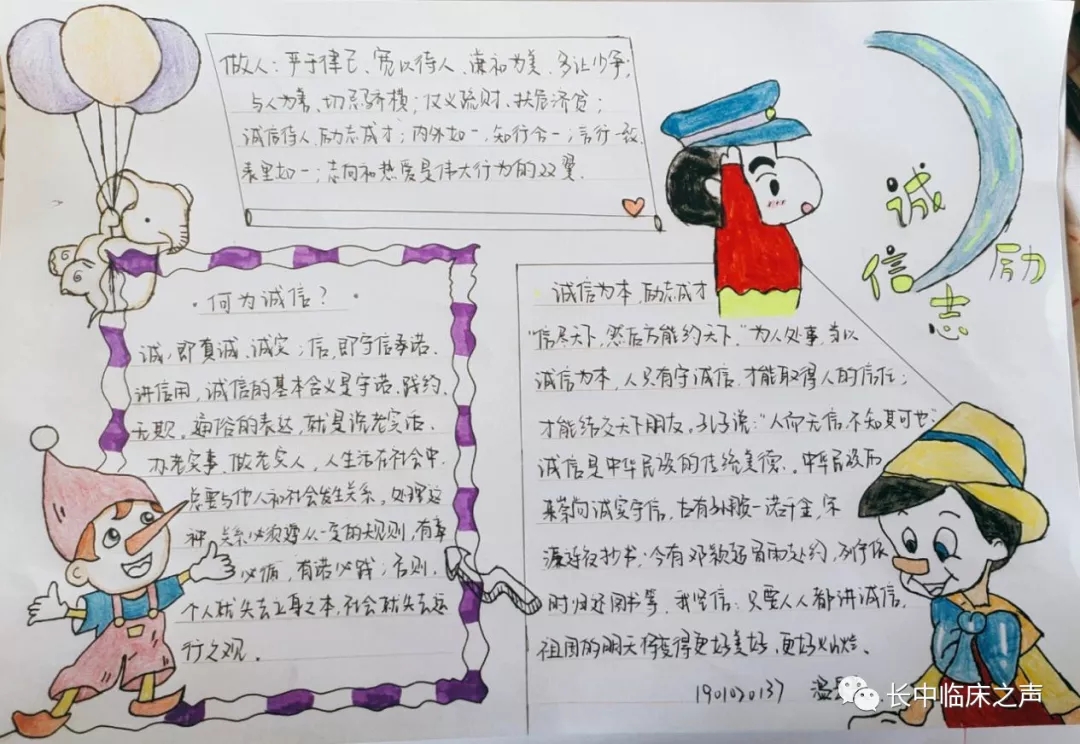 做人：严于律己、宽以待人、谦和为美、多让少争，
与人为善、切忌骄横；仗义疏财、扶危济贫；
诚信待人，励志成才；内外如一，知行合一；言行一致，
表里如一；志向和热爱是伟大行为的双翼。
诚
信
励
志
·何为诚信？·
诚，即真诚、诚实；信，即守信承诺、
讲信用，诚信的基本含义是守诺、践约、
无欺。通俗的表达，就是说老实话、
办老实事、做老实人，人生活在社会中，
总要与他人和社会发生关系，处理这
种关系必须遵从一定的规则，有章
必循，有诺必践；否则，
个人就失去立身之本，社会就失去运
行之规。
诚信为本，励志成才
“信尽天下，然后方能约天下。”为人处事，当以
诚信为本，人只有守诚信，才能取得人的信任；
才能结交天下朋友。孔子说：“人而无信，不知其可也；
诚信是中华民族的传统美德。中华民族历
来崇尚诚实守信，古有一诺千金，宋
濂连夜抄书，今有邓颖超冒雨赴约，列宁依
时归还图书等，我坚信：只要人人都讲诚信，
祖国的明天将变得更好美好，更好灿烂。
1901020137 温
长中临床之声